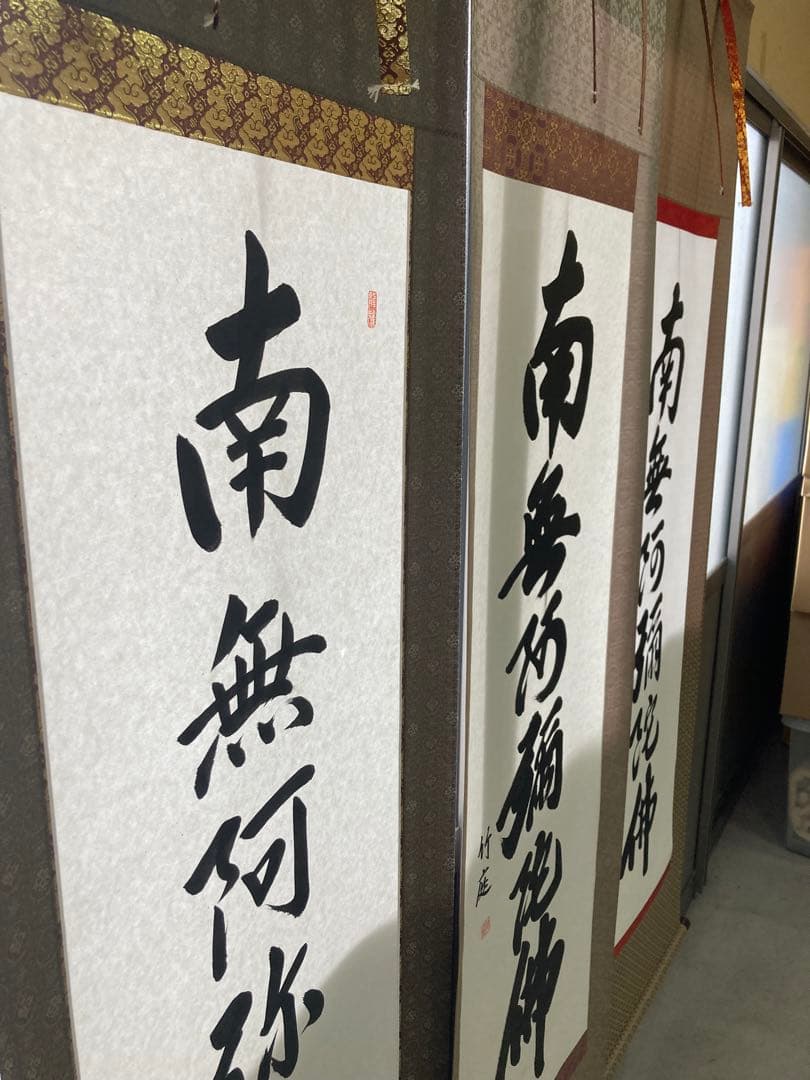 南無阿弥
南無阿彌陀佛
南無阿彌陀佛